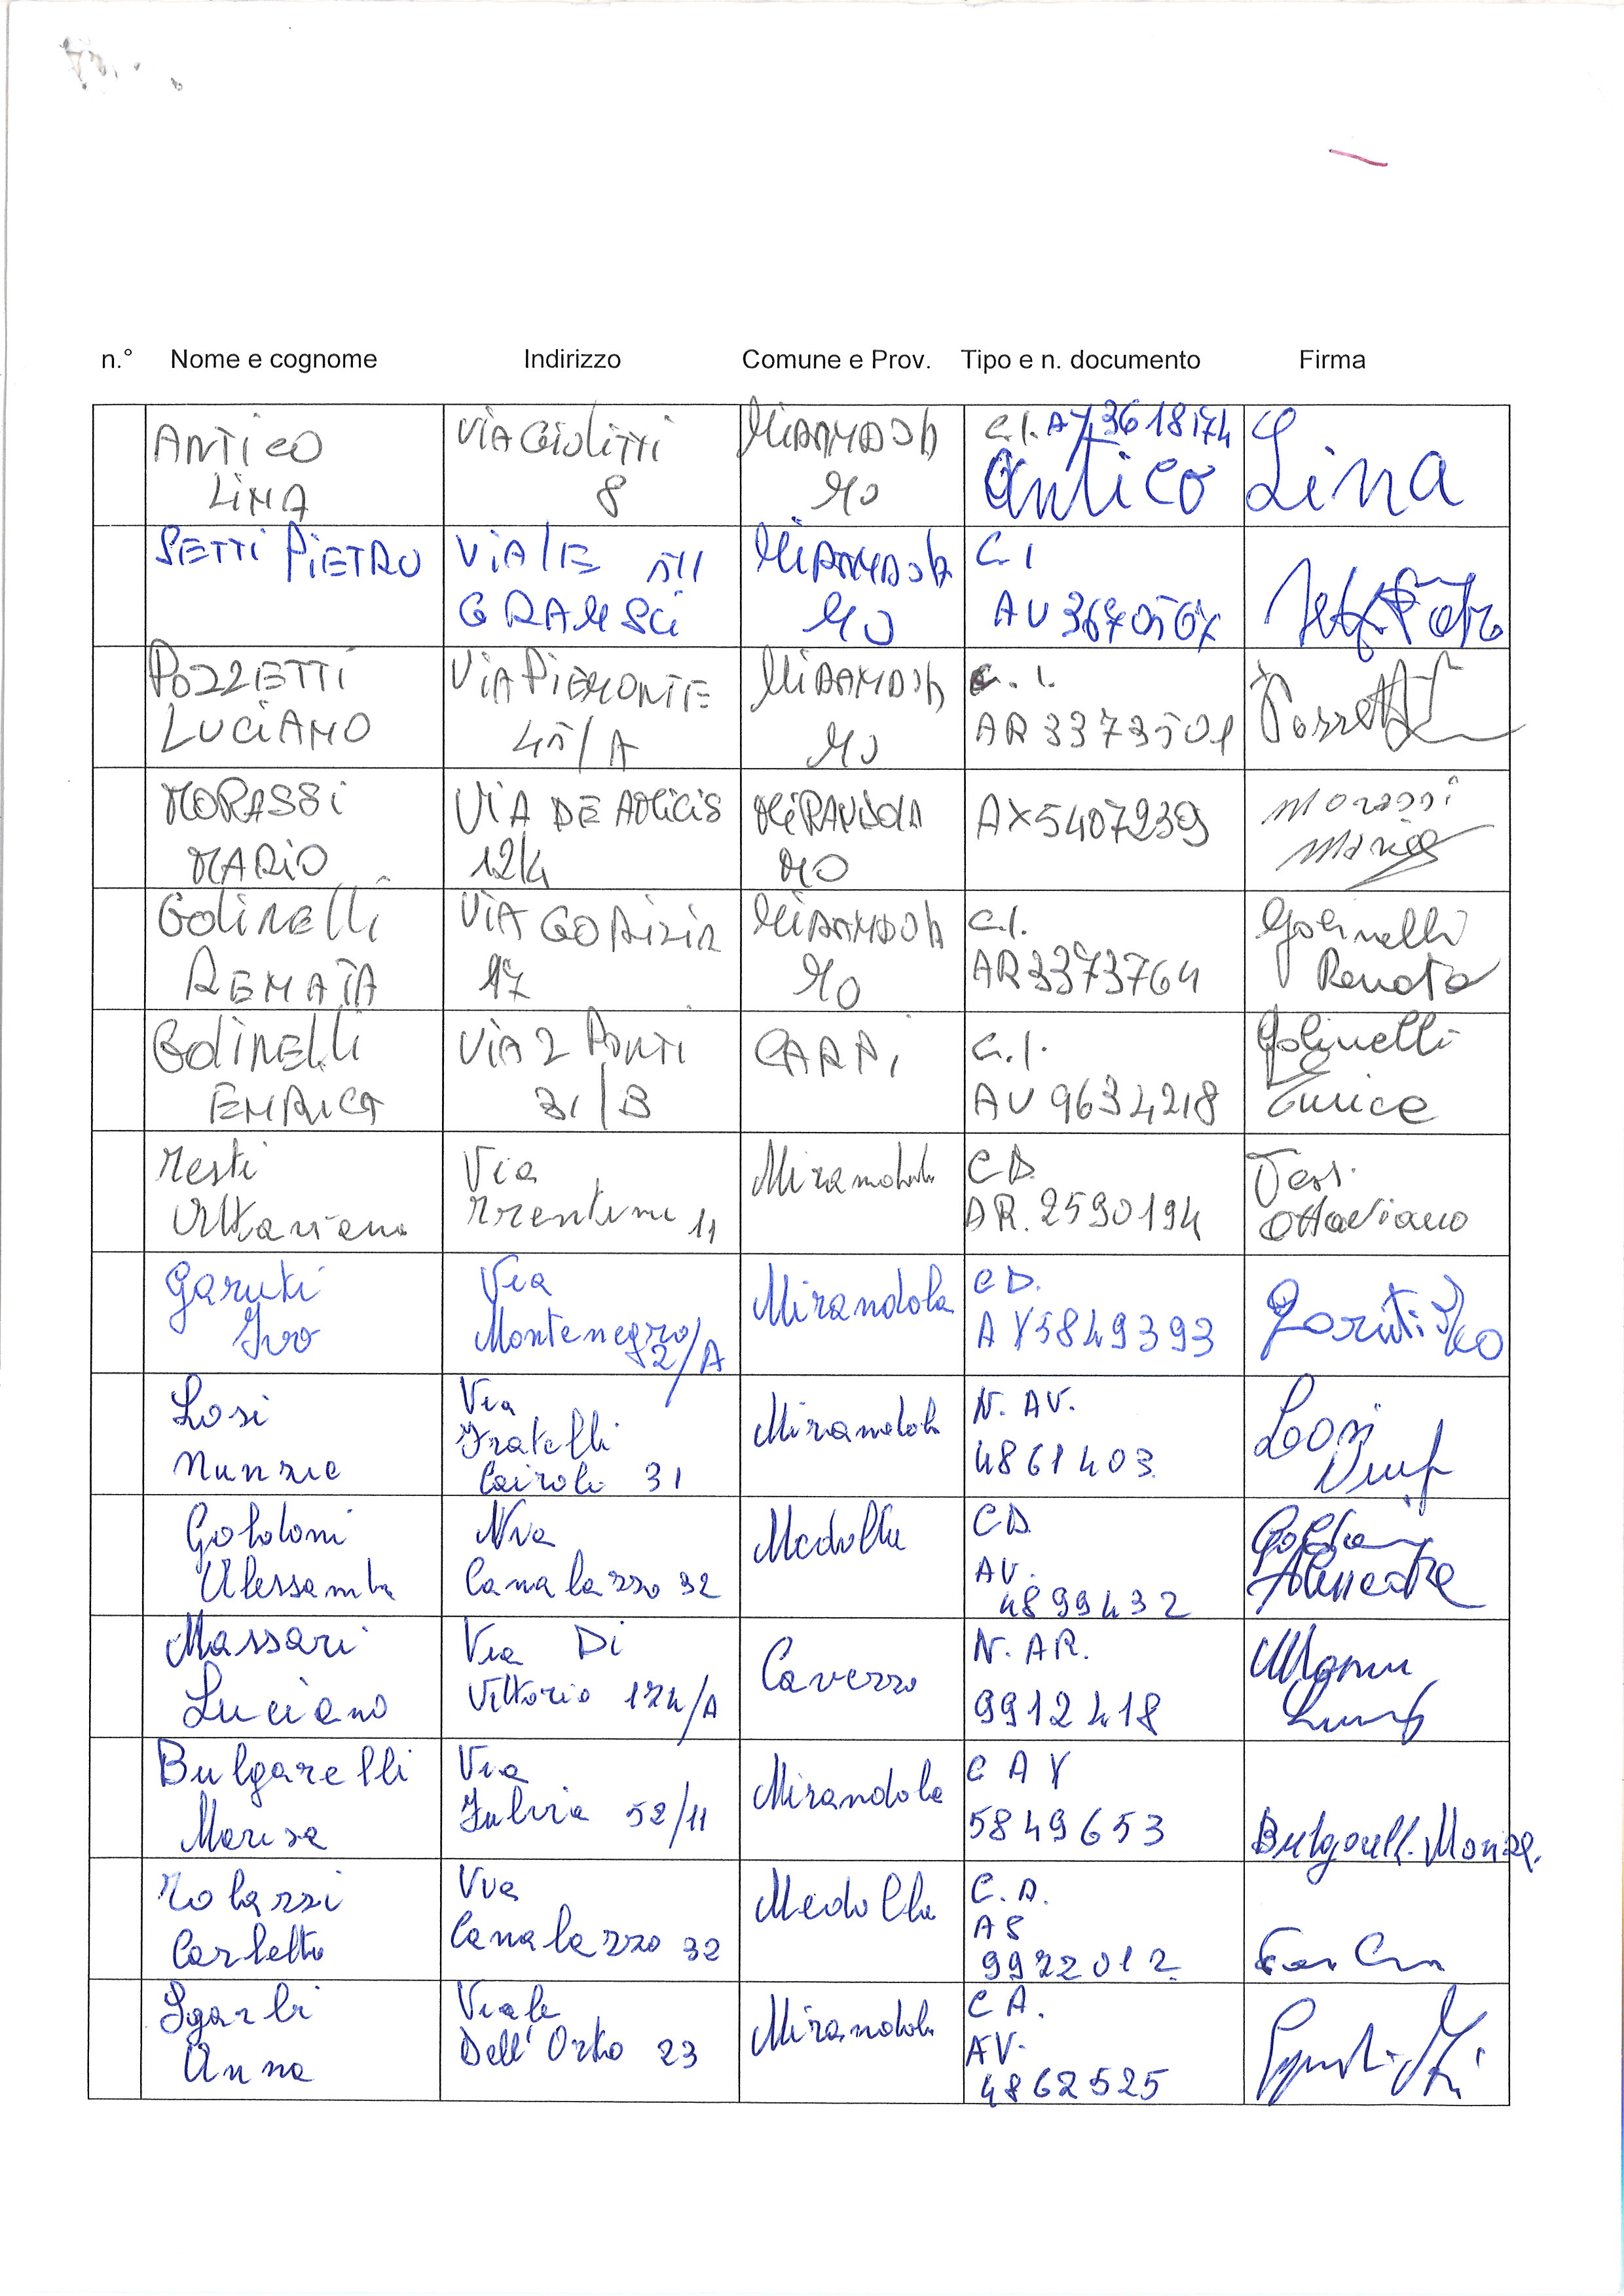 n.° Nome e cognome Indirizzo Comune e Prov. Tipo e n. documento Firma
ANTICO VIA GIOLITTI MIRANDOLA C.I. AY3618174
LINA 8 MO Antico Lina
SETTI PIETRO VIALE 511 MIRANDOLA C.I
GRAMSCI MO AU3670567
POZZETTI VIA PIEMONTE MIRANDOLA C.I. Pozzetti
LUCIANO 45/A MO AR3373501
MORASSI VIA DE AMICIS MIRANDOLA AX5407239 Morassi
MARIO 12/4 MO Mario
Golinelli VIA GORIZIA MIRANDOLA C.I. Golinelli
RENATA 17 MO AR3373764 Renata
GOLINELLI VIA 2 PONTI CARPI C.I. Golinelli
ENRICA 31/B AU9634218
Testi Via Mirandola CD
Ottaviano Trentino 11 AR.2590194 Ottaviano
Garuti Via Mirandola CD. Garuti Ivo
Ivo Montenegro 2/A AY5849393
Losi Via Mirandola N. AV. Losi
Nunzio Fratelli 4861403
Cairoli 31
Goldoni Via Medolla CD
Alessandra Canalazzo 32 AV. 4899432
Massari Via Di Cavezzo N. AR.
Luciano Vittorio 174/A 9912418
Bulgarelli Via Mirandola C AY
Marisa Fulvia 52/11 5849653 Bulgarelli Marisa
Via Medolla C.D.
Carletto Canalazzo 32 AS
9922012
Sgarbi Viale Mirandola CA.
Anna Dell'Orto 23 AV.
4862525